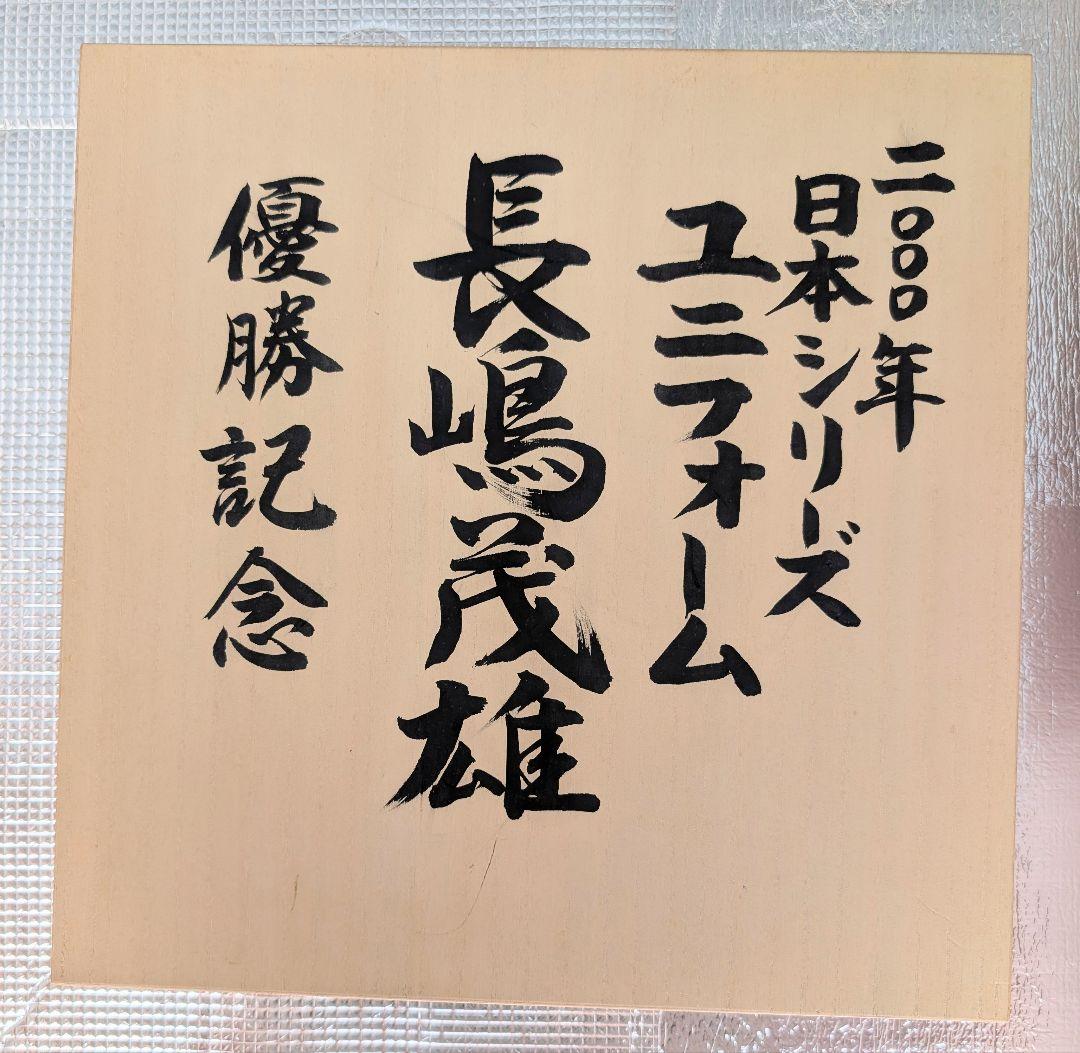 二〇〇〇年
日本シリーズ
ユニフォーム
長嶋茂雄
優勝記念